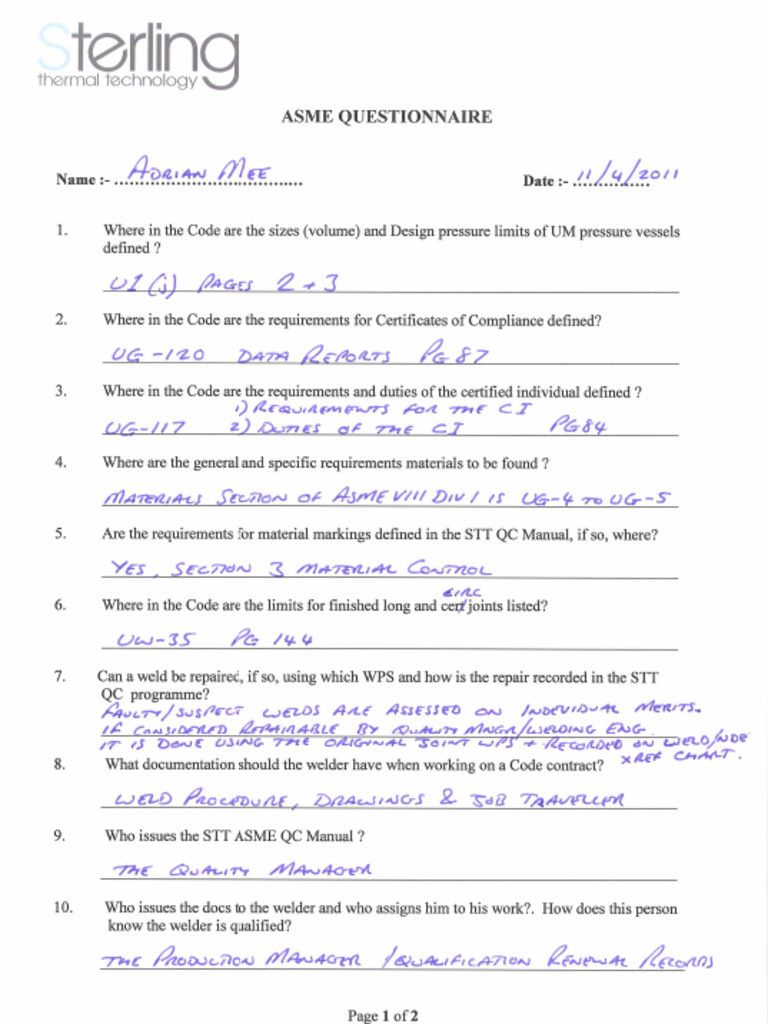 Sterling
thermal technology
ASME QUESTIONNAIRE
Name :- ADRIAN MEE Date :- 11/4/2011
1. Where in the Code are the sizes (volume) and Design pressure limits of UM pressure vessels
defined ?
U1 (j) PAGES 2 + 3
2. Where in the Code are the requirements for Certificates of Compliance defined?
UG-120 DATA REPORTS PG 87
3. Where in the Code are the requirements and duties of the certified individual defined ?
1) REQUIREMENTS FOR THE CI
UG-117 2) DUTIES OF THE CI PG84
4. Where are the general and specific requirements materials to be found ?
MATERIALS SECTION OF ASME VIII DIV 1 IS UG-4 TO UG-5
5. Are the requirements for material markings defined in the STT QC Manual, if so, where?
YES, SECTION 3 MATERIAL CONTROL
CIRC
6. Where in the Code are the limits for finished long and cert joints listed?
UW-35 PG 144
7. Can a weld be repaired, if so, using which WPS and how is the repair recorded in the STT
QC programme?
FAULTY/SUSPECT WELDS ARE ASSESSED ON INDIVIDUAL MERITS.
IF CONSIDERED REPAIRABLE BY QUALITY MNGR/WELDING ENG
IT IS DONE USING THE ORIGINAL JOINT WPS + RECORDED ON WELD/NDE
XREF CHART.
8. What documentation should the welder have when working on a Code contract?
WELD PROCEDURE, DRAWINGS & JOB TRAVELLER
9. Who issues the STT ASME QC Manual ?
THE QUALITY MANAGER
10. Who issues the docs to the welder and who assigns him to his work?. How does this person
know the welder is qualified?
THE PRODUCTION MANAGER / QUALIFICATION RENEWAL RECORDS
Page 1 of 2